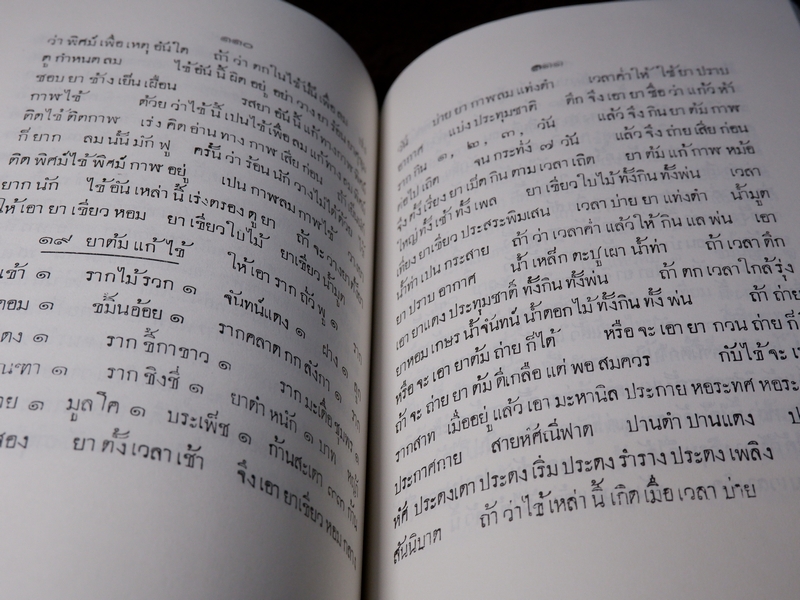 ๑๑๐
ว่า พิศม์ เพื่อ เหตุ อันใด ถ้า ว่า ตกในไข้นี้ เพื่อ ลม
ดู กำหนด ลม ไข้ อันนี้ ผิด อยู่ อย่า วาง ยา ร้อน
ชอบ ยา ช้าง เย็น เฝื่อน รสยา อันนี้ แก้ ทาง กาฬ
กาฬ ไข้ ด้วย ว่า ไข้ นี้ เปน ไข้ เพื่อ ลม แก้ ทาง
คิดไข้ คิดกาฬ เร่ง คิด อ่าน ทาง กาฬ เสีย ก่อน
ก็ ยาก ลม นั้น มัก ฟู ครั้น ว่า ร้อน นัก วาง ไม่ ได้ ด้วย
คิด พิศม์ไข้ พิศม์ กาฬ อยู่ เปน กาฬ ลม กาฬ ไข้
ยาก นัก ไข้ อัน เหล่า นี้ เร่ง ตรอง ดู ยา ถ้า จะ วาง ยา
ให้ เอา ยา เขียว หอม ยา เขียว ใบไม้ ยาเขียว น้ำมูต
๑๙ ยาต้ม แก้ ไข้ ให้ เอา ราก ถั่ว พู ๑ ราก
เข้า ๑ รากไม้ รวก ๑ จันทน์แดง ๑ ฝาง ๑
ตอม ๑ ขมิ้นอ้อย ๑ รากคลาด กก ลังกา ๑ ราก
แดง ๑ ราก ขี้กาขาว ๑ ราก มะเดื่อ ชุมพร ๑
ราก ชิงชี่ ๑ ยาดำ หนัก ๑ บาท
๑ มูล โค ๑ บระเพ็ช ๑ ก้านสะเดา ๓๓ ก้าน
สอง ยา ตั้ง เวลา เช้า จึ่ง เอา ยาเขียว หอม
๑๑๑
บ่าย ยา กาฬ ลม แท่งดำ เวลาค่ำ ให้ ใช้ ยา ปราบ
อากาศ แบ่ง ประทุมชาติ ดึก จึ่ง เอา ยา ชื่อ ว่า แก้ว ห้า
ราก กิน ๑, ๒, ๓, วัน แล้ว จึ่ง กิน ยา ต้ม กาฬ
ต่อ ไป เถิด จน กระทั่ง ๗ วัน แล้ว จึ่ง ถ่าย เสีย ก่อน
จึ่ง ตั้ง เรียง ยา เม็ด กิน ตาม เวลา เถิด ยา ต้ม แก้ กาฬ หม้อ
ใหญ่ ทั้ง เช้า ทั้ง เพล ยา เขียว ใบไม้ ทั้งกิน ทั้งพ่น เวลา
เที่ยง ยาเขียว ประสระพิมเสน เวลา บ่าย ยา แท่งดำ น้ำมูต
น้ำท่า เปน กระสาย ถ้า ว่า เวลาค่ำ แล้ว ให้ กิน แล พ่น เอา
ยา ปราบ อากาศ น้ำ เหล็ก ตะปู เผา น้ำท่า ถ้า เวลา ดึก
เอา ยาแดง ประทุมชาติ ทั้งกิน ทั้งพ่น ถ้า ตก เวลา ใกล้ รุ่ง
ยาหอม เกษร น้ำจันทน์ น้ำดอกไม้ ทั้งกิน ทั้ง พ่น ถ้า ถ่าย
หรือ จะ เอา ยาต้ม ถ่าย ก็ได้ หรือ จะ เอา ยา กวน ถ่าย ก็
ถ้า จะ ถ่าย ยา ต้ม ดีเกลือ แต่ พอ สมควร กับไข้ จะ
รากสาท เมื่อ อยู่ แล้ว เอา มะหานิล ประกาย หอระทศ หอระ
ประกาศกาย สายหัศณีฟาด ปานดำ ปานแดง
หัศ ประดงเดา ประดง เริ่ม ประดง รำราง ประดง เพลิง
สันนิบาต ถ้า ว่าไข้ เหล่า นี้ เกิด เมื่อ เวลา บ่าย